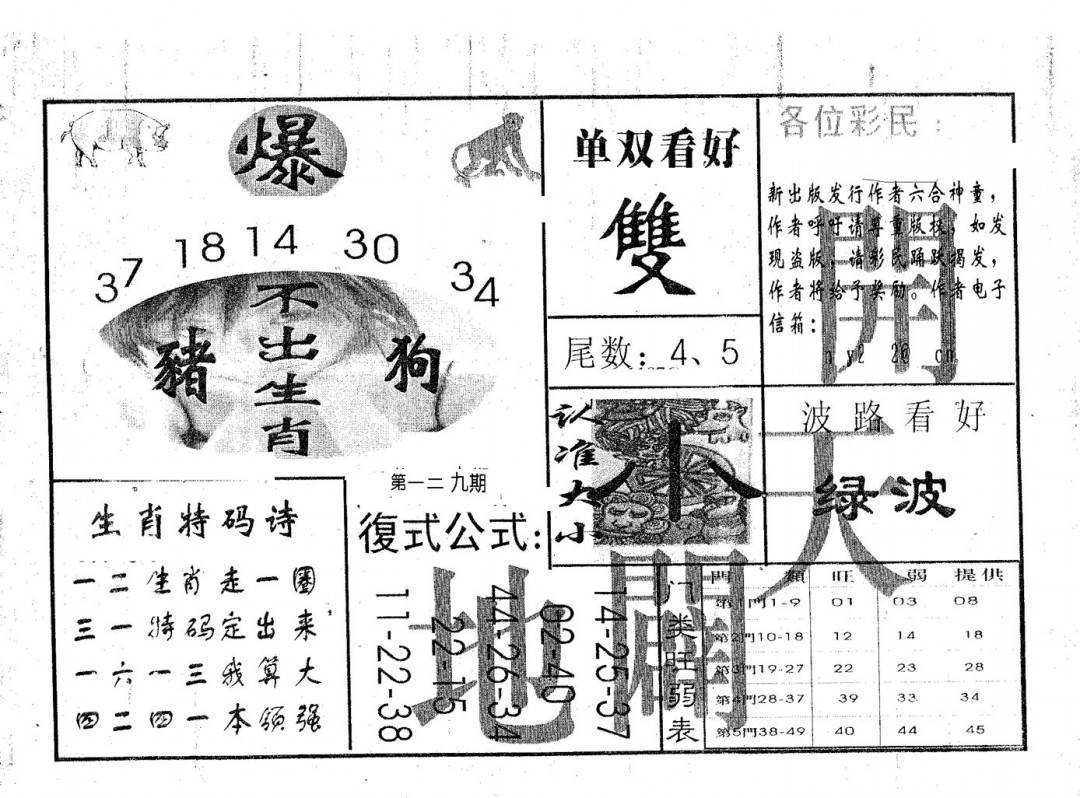 爆
37 18 14 30 34
不出生肖
豬
狗
单双看好
雙
尾数：4、5
各位彩民：
新出版发行作者六合神童，
作者呼吁请尊重版权，如发
现盗版，请彩民踊跃揭发，
作者将给予奖励。作者电子
信箱：
開
天
闢
地
认准大小
小
波路看好
绿波
第一二九期
生肖特码诗
一二生肖走一圈
三一特码定出来
一六一三我算大
四二四一本领强
復式公式：
14-25-37
02-40
44-26-34
22-15
11-22-38
门类旺弱表
門類 旺 弱 提供
第1門1-9 01 03 08
第2門10-18 12 14 18
第3門19-27 22 23 28
第4門28-37 39 33 34
第5門38-49 40 44 45